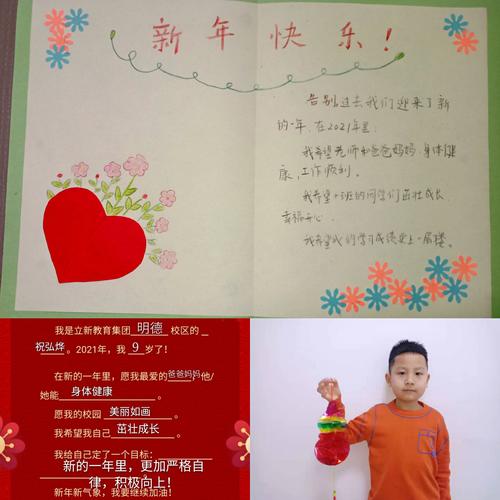 新年快乐!
告别过去我们迎来了新
的一年.在2021年里:
我希望老师和爸爸妈妈.身体健
康,工作顺利。
我希望 班的同学们茁壮成长
幸福开心.
我希望我们的学习成绩更上一层楼。
我是立新教育集团 明德 校区的
祝弘烨。2021年,我 9 岁了!
在新的一年里,愿我最爱的爸爸妈妈,他/
她能 身体健康 。
愿我的校园 美丽如画 。
我希望我自己 茁壮成长 。
我给自己定了一个目标:
新的一年里,更加严格自
律,积极向上!
新年新气象,我要继续加油!